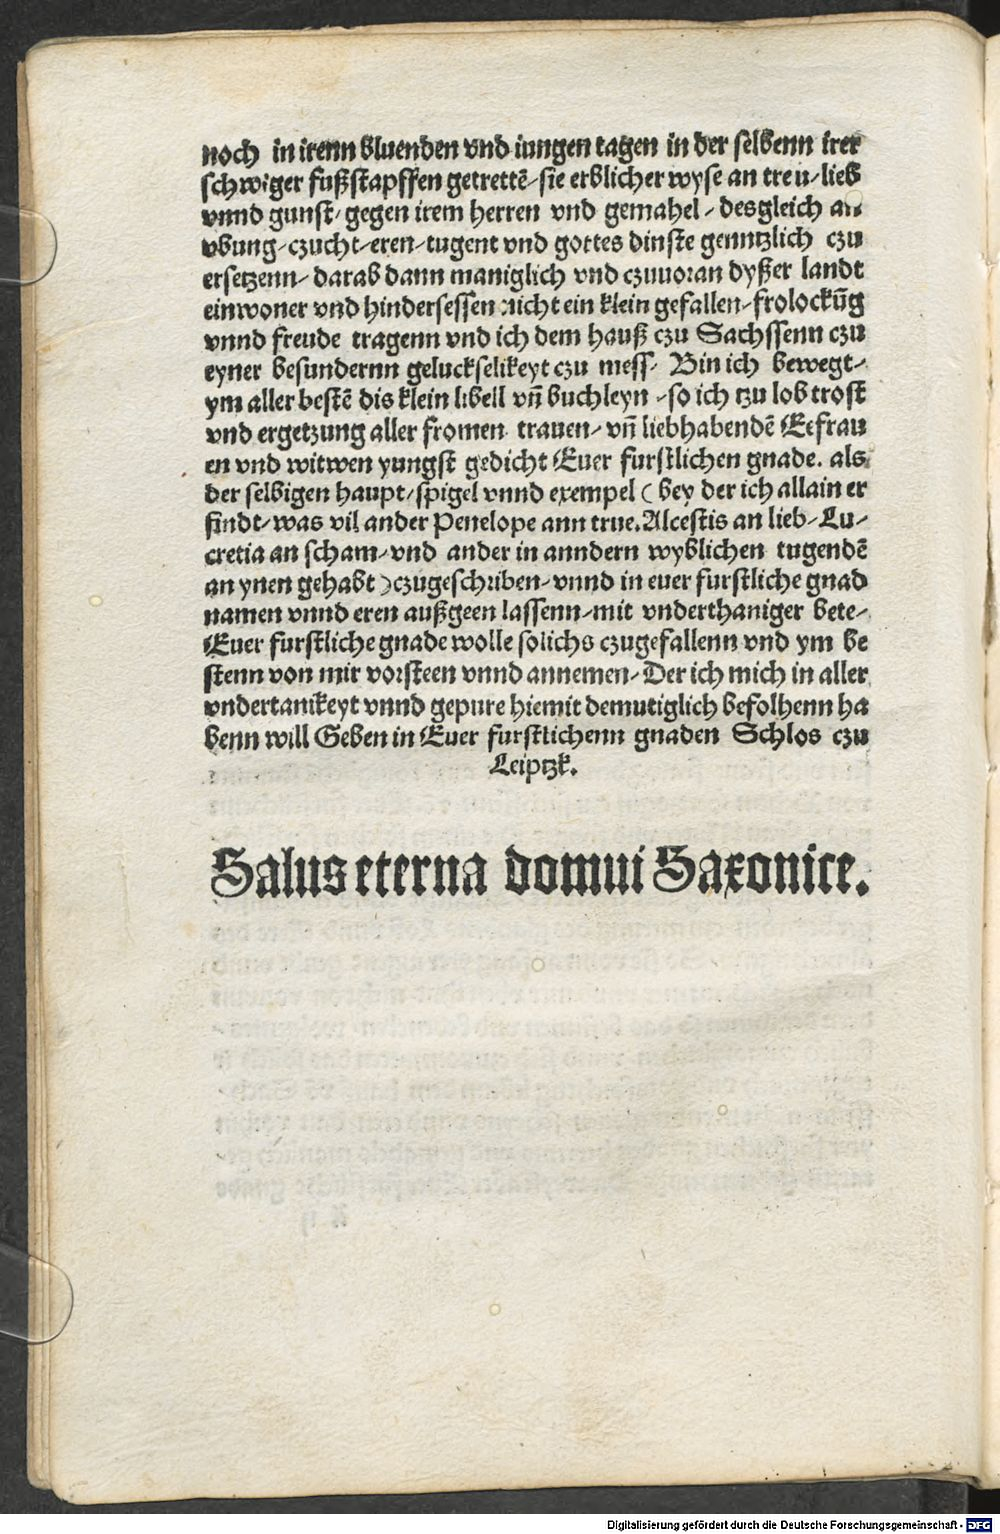 noch in irenn bluenden vnd iungen tagen in der selbenn irer
schwiger fußstapffen getrettē/ sie erblicher wyse an treu/ lieb
vnnd gunst/ gegen irem herren vnd gemahel/ desgleich an
vbung/ czucht/ eren/ tugent vnd gottes dinste genntzlich czu
ersetzenn/ darab dann maniglich vnd czuuoran dyßer landt
einwoner vnd hindersessen nicht ein klein gefallen/ frolockūg
vnnd freude tragenn vnd ich dem hauß czu Sachssenn czu
eyner besundernn geluckselikeyt czu mess/ Bin ich bewegt/
ym aller bestē dis klein libell vn̄ buchleyn/ so ich tzu lob trost
vnd ergetzung aller fromen trauen/ vn̄ liebhabendē Eefrau
en vnd witwen yungst gedicht Euer furstlichen gnade. als
der selbigen haupt/ spigel vnnd exempel ( bey der ich allain er
findt/ was vil ander Penelope ann true. Alcestis an lieb/ Lu/
cretia an scham/ vnd ander in anndern wyblichen tugendē
an ynen gehabt ) czugeschriben/ vnnd in euer furstliche gnad
namen vnnd eren außgeen lassenn/ mit vnderthaniger bete/
Euer furstliche gnade wolle solichs czugefallenn vnd ym be
stenn von mir vorsteen vnnd annemen/ Der ich mich in aller
vndertanikeyt vnnd gepure hiemit demutiglich befolhenn ha
benn will Geben in Euer furstlichenn gnaden Schlos czu
Leiptzk.
Salus eterna domui Saxonice.
Digitalisierung gefördert durch die Deutsche Forschungsgemeinschaft - DFG